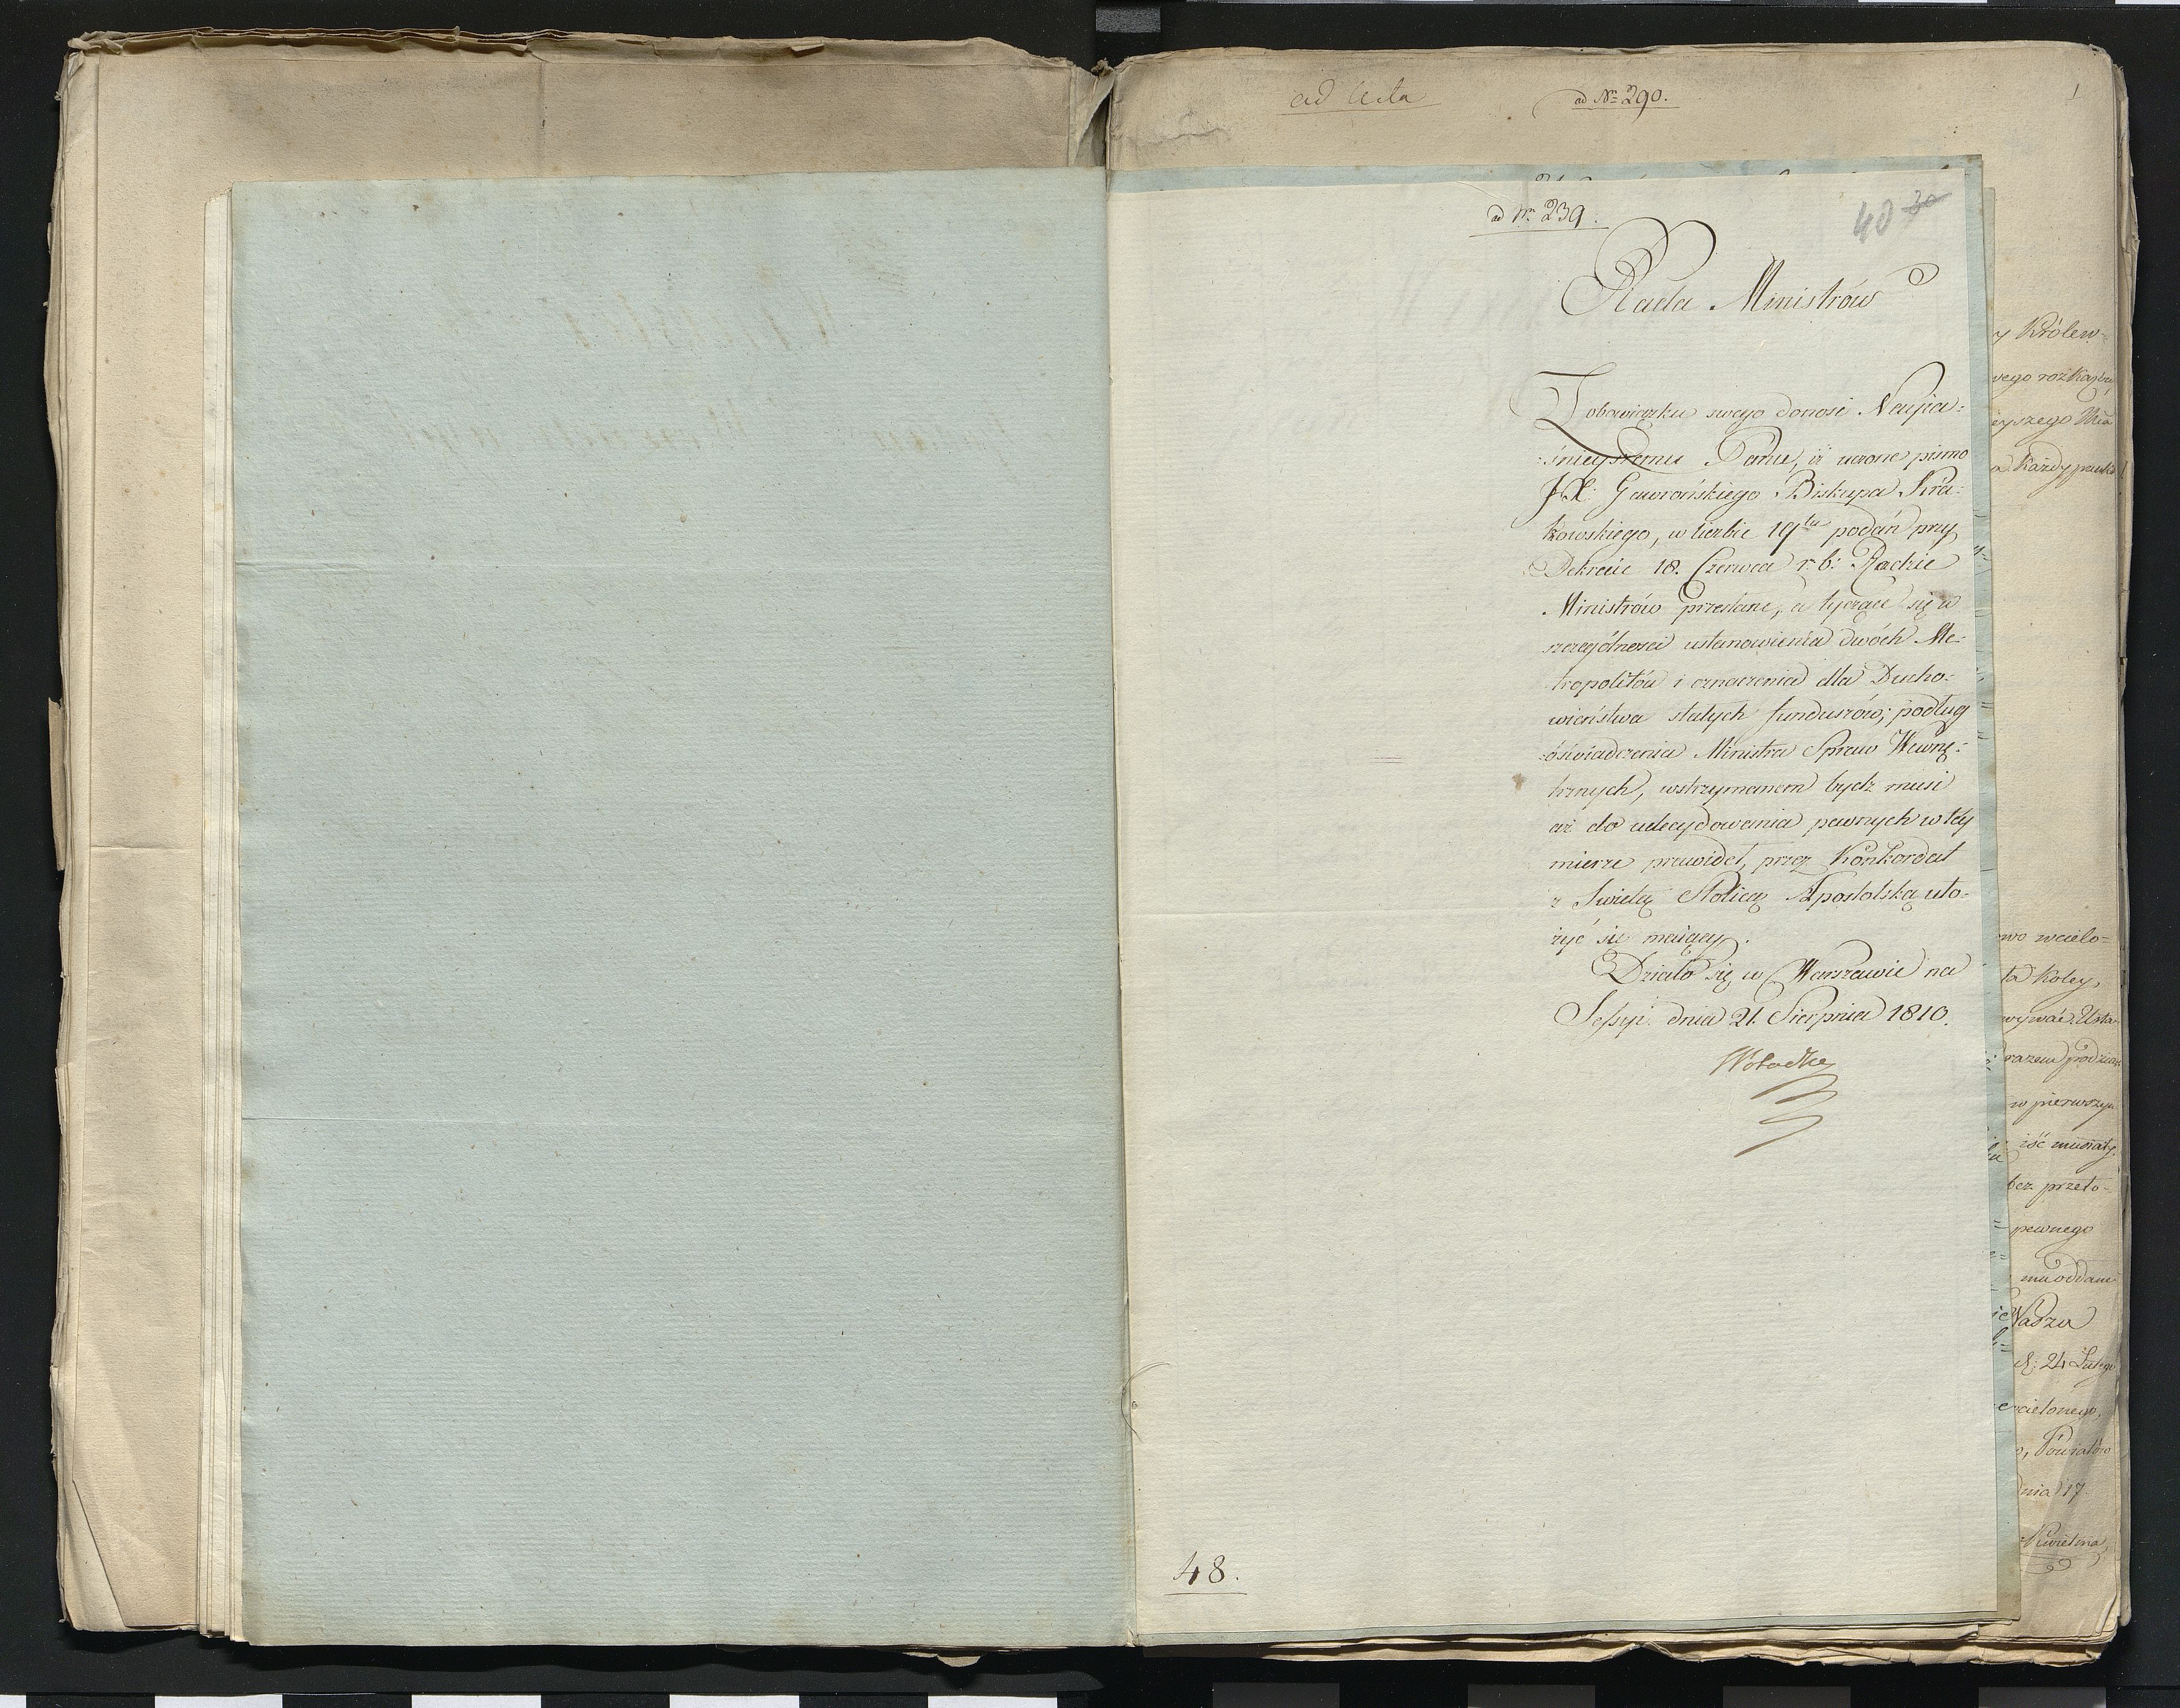 ad Acta
ad Nr 290.
1
ad Nr. 239.
40 30
Rada Ministrów
Z obowiązku swego donosi Nayia:
:śnieyszemu Panu, iż uczone pismo
JX: Gawrońskiego Biskupa Kra:
kowskiego, w liczbie 19tu podań przy
Dekrecie 18. Czerwca r: b: Radzie
Ministrów przesłane, a tyczące się w
szczególności ustanowienia dwóch Me:
tropolitów i oznaczenia dla Ducho:
wieństwa stałych funduszów; podług
oświadczenia Ministra Spraw Wewnę:
trznych, wstrzymanem bydź musi
aż do udecydowania pewnych w téy
mierze prawideł, przez Konkordat
z Swiętą Stolicą Apostolską uło:
żyć się maiący.
Działo się w Warszawie na
Sessyi dnia 21. Sierpnia 1810.
48.
y Królew=
wego rozkazu,
a Każdy
owo wcielo=
ta Koley,
w pierwszym
iść musiały.
bez przeło=
pewnego
mu oddane
24 Lutego
wcielonego,
Powiatów
dnia 17.
Kwietnia,